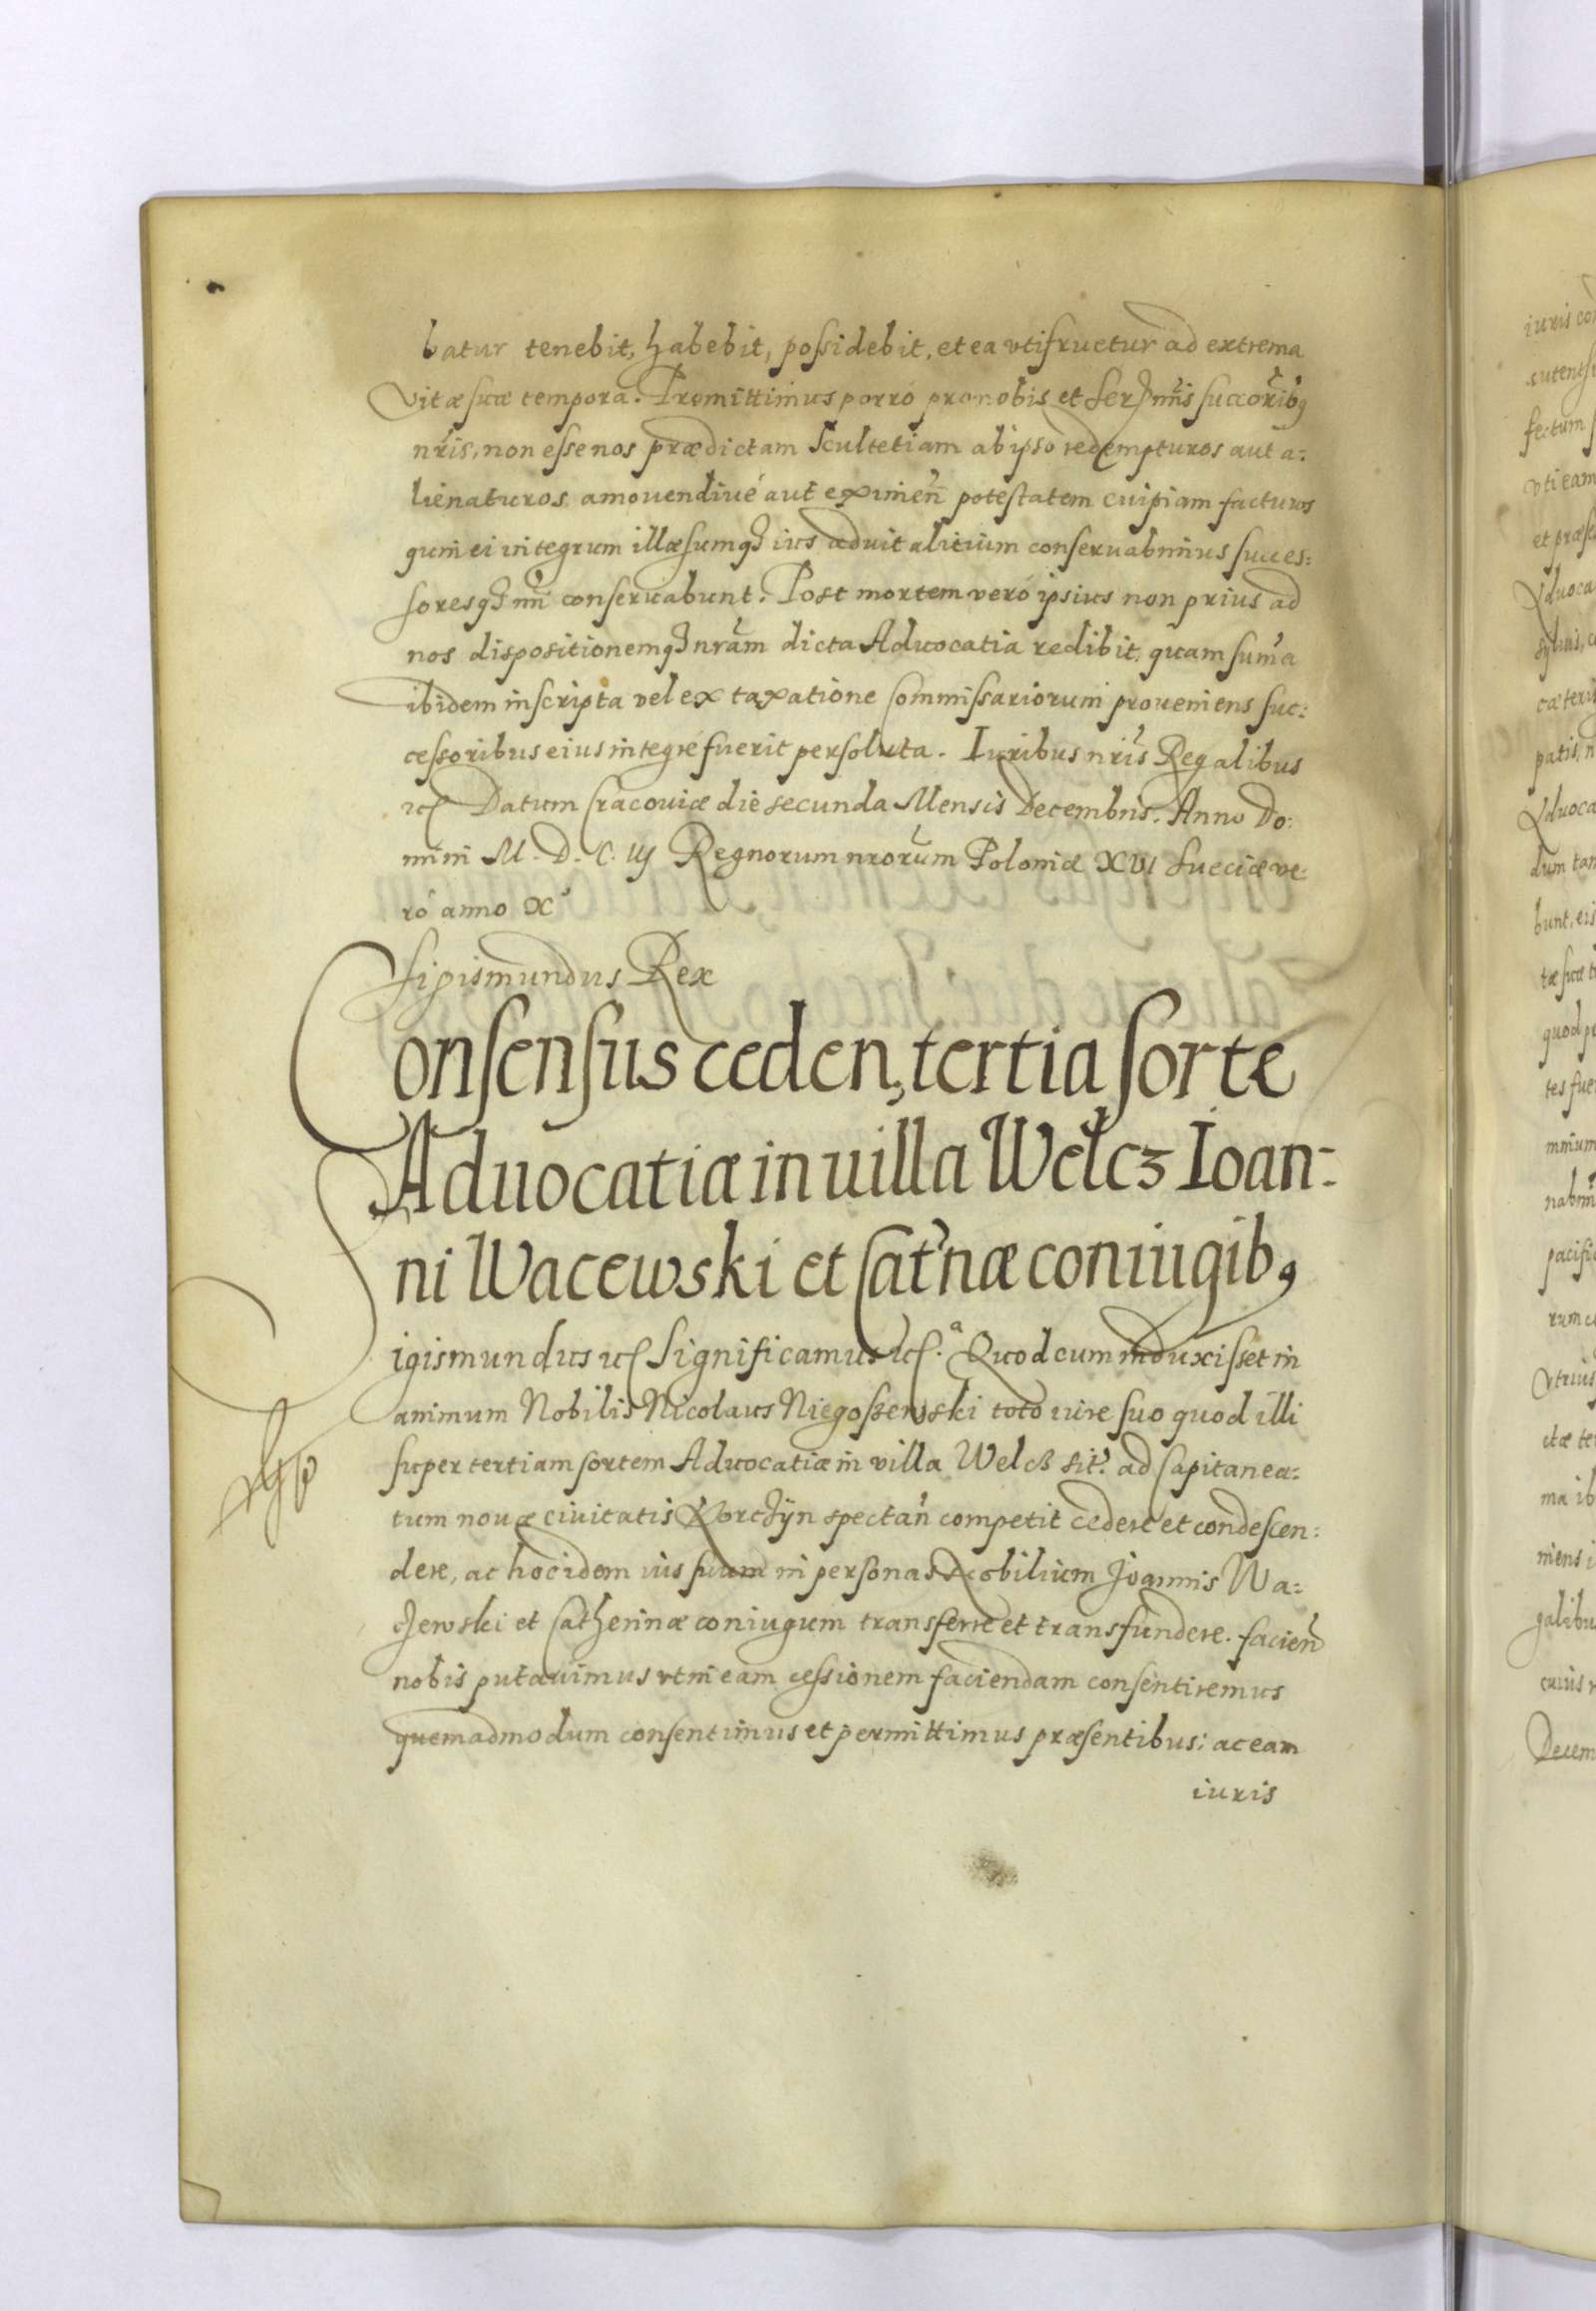 batur tenebit, habebit, possidebit, et ea vtifruetur ad extrema
vitæ suæ tempora. Promittimus porró pro nobis et Serẽnn̄is succorib9
nr̃is, non esse nos prædictam Scultetiam ab ipso redempturos aut a:
lienaturos amouendiué aut eximen̄ potestatem cuipiam facturos
quin ei integrum illæsumq3 ius aduitalitium conseruabimus succes:
soresq3 nr̃i conseruabunt. Post mortem veró ipsius non prius ad
nos dispositionemq3 nrãm dicta Aduocatia redibit, quam suma
ibidem inscripta vel ex taxatione Commissariorum proueniens suc:
cessoribus eius integré fuerit persoluta. Iuribus nr̃is Regalibus
etc Datum Cracouiæ die secunda Mensis Decembris. Anno Do:
mini M. D. C. iij Regnorum nrorũm Poloniæ XVI Sueciæ ve:
ró anno X°
Sigismundus Rex
Consensus ceden, tertia sorte
Aduocatiæ in uilla Welcz Ioan:
ni Wacewski et Cat'næ coniugib9
Sigismundus etc Significamus etc.ª Quod cum induxisset in
animum Nobilis Nicolaus Niegoszewski toto iure suo quod illi
super tertiam sortem Aduocatiæ in villa Welcz sit? ad Capitanea:
tum nouæ ciuitatis Korczÿn spectan̄ competit cedere et condescen:
dere, ac hoc idem ius suum in personas Nobilium Joannis Wa:
czewski et Catherinæ coniugum transferre et transfundere. facien̄
nobis putauimus vt in eam cessionem faciendam consentiremus
quemadmodum consentimus et permittimus præsentibus: ac eam
iuris